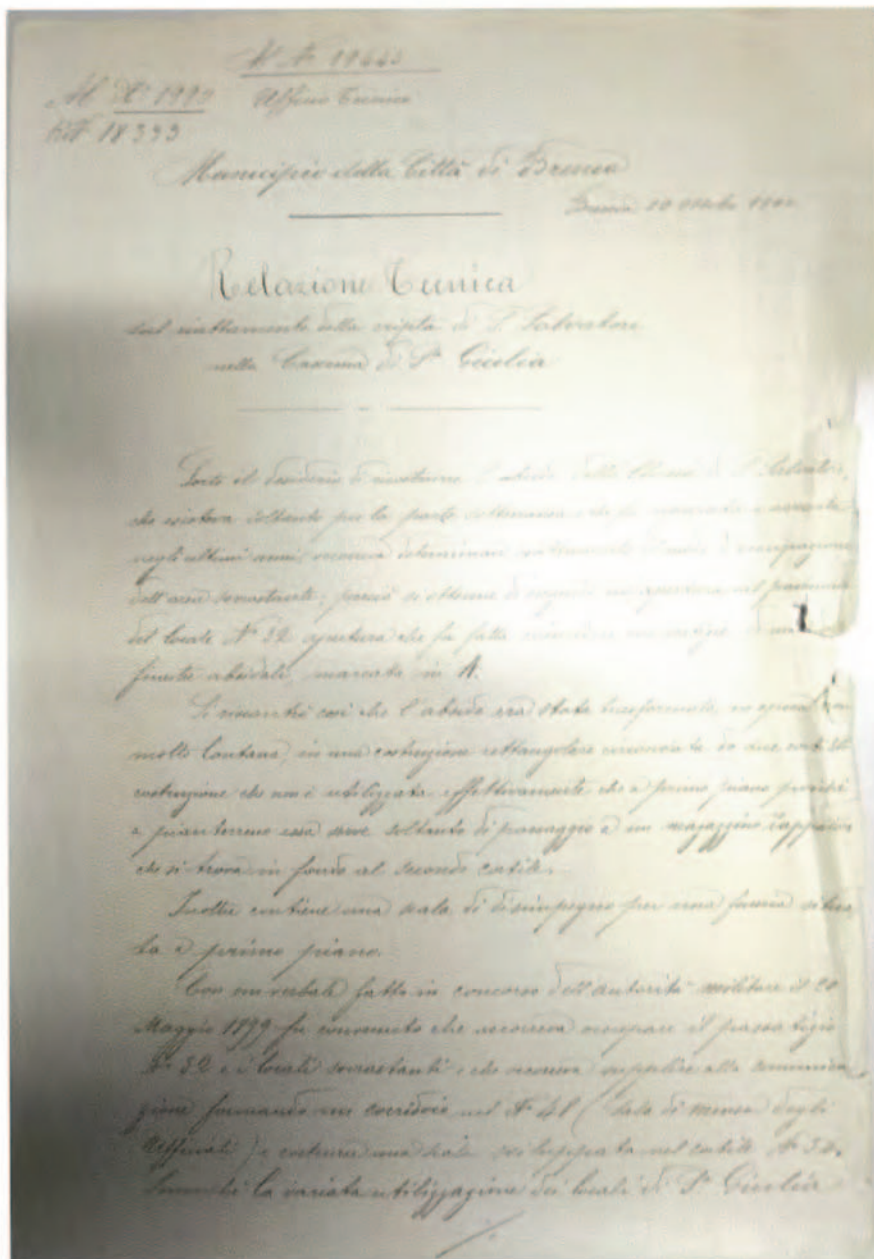 Ufficio Tecnico
18333
Municipio della Città di Brescia
Brescia 10 Ottobre
Relazione Tecnica
sul riattamento della cripta di S. Salvatore
nella Caserma di Sª Giulia
Sorto il desiderio di ricostruire l'abside della Chiesa di S. Salvatore,
che esisteva soltanto per la parte sotterranea
negli ultimi anni, occorreva determinare
dell'area sovrastante; perciò si ottenne di eseguire un'apertura nel
del locale Nº 32 apertura che fu fatta
finestre absidali, marcata in A.
Si riscontrò così che l'abside era stata trasformata, in epoca non
molto lontana, in una costruzione rettangolare
costruzione che non è utilizzata effettivamente che a primo piano
a pianterreno essa serve soltanto di passaggio a un magazzino
che si trova in fondo al secondo cortile.
Inoltre contiene una scala di disimpegno per una
ta a primo piano.
Con un verbale fatto in concorso dell'autorità militare il 20
Maggio 1899 fu convenuto che occorreva occupare il
Nº 32 e i locali sovrastanti, che occorreva supplire alla comunica
zione formando un corridoio nel Nº 48 (Sala di mensa degli
Ufficiali) e costruire una scala sviluppata nel cortile Nº
la variata utilizzazione dei locali di Sª Giulia